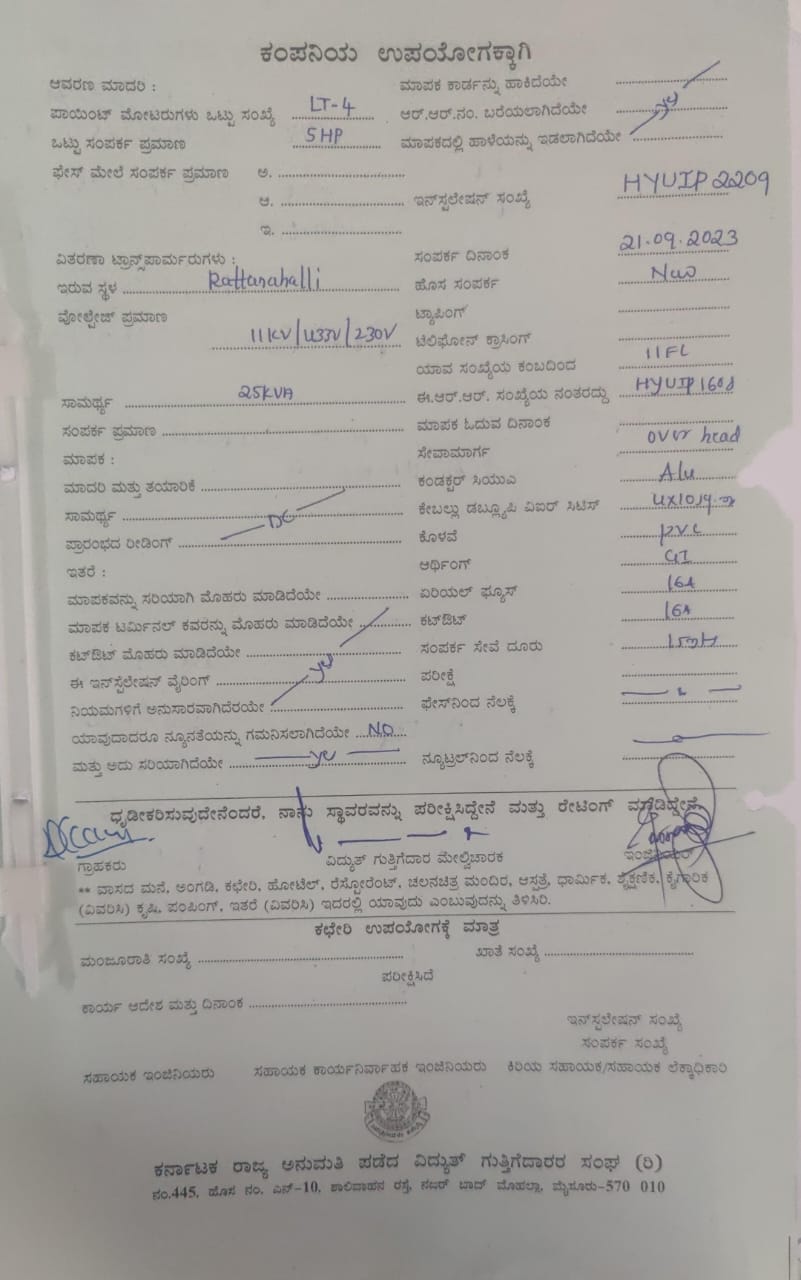 ಕಂಪನಿಯ ಉಪಯೋಗಕ್ಕಾಗಿ
ಆವರಣ ಮಾದರಿ :
ಪಾಯಿಂಟ್ ಮೋಟರುಗಳು ಒಟ್ಟು ಸಂಖ್ಯೆ LT-4
ಒಟ್ಟು ಸಂಪರ್ಕ ಪ್ರಮಾಣ 5HP
ಫೇಸ್ ಮೇಲೆ ಸಂಪರ್ಕ ಪ್ರಮಾಣ ಅ.
ಆ.
ಇ.
ವಿತರಣಾ ಟ್ರಾನ್ಸ್‌ಪಾರ್ಮರುಗಳು :
ಇರುವ ಸ್ಥಳ Rattanahalli
ವೋಲ್ಟೇಜ್ ಪ್ರಮಾಣ
11KV/433V/230V
ಸಾಮರ್ಥ್ಯ 25KVA
ಸಂಪರ್ಕ ಪ್ರಮಾಣ
ಮಾಪಕ :
ಮಾದರಿ ಮತ್ತು ತಯಾರಿಕೆ
ಸಾಮರ್ಥ್ಯ
ಪ್ರಾರಂಭದ ರೀಡಿಂಗ್ DC
ಇತರೆ :
ಮಾಪಕವನ್ನು ಸರಿಯಾಗಿ ಮೊಹರು ಮಾಡಿದೆಯೇ
ಮಾಪಕ ಟರ್ಮಿನಲ್ ಕವರನ್ನು ಮೊಹರು ಮಾಡಿದೆಯೇ
ಕಟ್‌ಔಟ್ ಮೊಹರು ಮಾಡಿದೆಯೇ
ಈ ಇನ್‌ಸ್ಟಲೇಷನ್ ವೈರಿಂಗ್ yes
ನಿಯಮಗಳಿಗೆ ಅನುಸಾರವಾಗಿದೆರಯೇ
ಯಾವುದಾದರೂ ನ್ಯೂನತೆಯನ್ನು ಗಮನಿಸಲಾಗಿದೆಯೇ NO
ಮತ್ತು ಅದು ಸರಿಯಾಗಿದೆಯೇ yes
ಮಾಪಕ ಕಾರ್ಡನ್ನು ಹಾಕಿದೆಯೇ
ಆರ್.ಆರ್.ನಂ. ಬರೆಯಲಾಗಿದೆಯೇ yes
ಮಾಪಕದಲ್ಲಿ ಹಾಳೆಯನ್ನು ಇಡಲಾಗಿದೆಯೇ
ಇನ್‌ಸ್ಟಲೇಷನ್ ಸಂಖ್ಯೆ HYUIP2209
ಸಂಪರ್ಕ ದಿನಾಂಕ 21.09.2023
ಹೊಸ ಸಂಪರ್ಕ New
ಟ್ಯಾಪಿಂಗ್
ಟೆಲಿಫೋನ್ ಕ್ರಾಸಿಂಗ್
ಯಾವ ಸಂಖ್ಯೆಯ ಕಂಬದಿಂದ 11FL
ಈ.ಆರ್.ಆರ್. ಸಂಖ್ಯೆಯ ನಂತರದ್ದು
ಮಾಪಕ ಓದುವ ದಿನಾಂಕ
ಸೇವಾಮಾರ್ಗ over head
ಕಂಡಕ್ಟರ್ ಸಿಯುಎ Alu
ಕೇಬಲ್ಲು ಡಬ್ಲ್ಯೂಪಿ ವಿಐರ್ ಸಿಟಿಸ್
ಕೊಳವೆ PVC
ಆರ್ಥಿಂಗ್ GI
ಏರಿಯಲ್ ಫ್ಯೂಸ್ 16A
ಕಟ್‌ಔಟ್ 16A
ಸಂಪರ್ಕ ಸೇವೆ ದೂರು
ಪರೀಕ್ಷೆ
ಫೇಸ್‌ನಿಂದ ನೆಲಕ್ಕೆ
ನ್ಯೂಟ್ರಲ್‌ನಿಂದ ನೆಲಕ್ಕೆ
ಧೃಡೀಕರಿಸುವುದೇನೆಂದರೆ, ನಾನು ಸ್ಥಾವರವನ್ನು ಪರೀಕ್ಷಿಸಿದ್ದೇನೆ ಮತ್ತು ರೇಟಿಂಗ್
ಗ್ರಾಹಕರು ವಿದ್ಯುತ್ ಗುತ್ತಿಗೆದಾರ ಮೇಲ್ವಿಚಾರಕ ಇಂಜಿನಿಯರ್
** ವಾಸದ ಮನೆ, ಅಂಗಡಿ, ಕಛೇರಿ, ಹೋಟೆಲ್, ರೆಸ್ಟೋರೆಂಟ್, ಚಲನಚಿತ್ರ ಮಂದಿರ, ಆಸ್ಪತ್ರೆ, ಧಾರ್ಮಿಕ, ಶೈಕ್ಷಣಿಕ, ಕೈಗಾರಿಕ
(ವಿವರಿಸಿ) ಕೃಷಿ, ಪಂಪಿಂಗ್, ಇತರೆ (ವಿವರಿಸಿ) ಇದರಲ್ಲಿ ಯಾವುದು ಎಂಬುವುದನ್ನು ತಿಳಿಸಿರಿ.
ಕಛೇರಿ ಉಪಯೋಗಕ್ಕೆ ಮಾತ್ರ
ಮಂಜೂರಾತಿ ಸಂಖ್ಯೆ ಖಾತೆ ಸಂಖ್ಯೆ
ಪರೀಕ್ಷಿಸಿದೆ
ಕಾರ್ಯ ಆದೇಶ ಮತ್ತು ದಿನಾಂಕ
ಇನ್‌ಸ್ಪಲೇಷನ್ ಸಂಖ್ಯೆ
ಸಂಪರ್ಕ ಸಂಖ್ಯೆ
ಸಹಾಯಕ ಇಂಜಿನಿಯರು ಸಹಾಯಕ ಕಾರ್ಯನಿರ್ವಾಹಕ ಇಂಜಿನಿಯರು ಕಿರಿಯ ಸಹಾಯಕ/ಸಹಾಯಕ ಲೆಕ್ಕಾಧಿಕಾರಿ
ಕರ್ನಾಟಕ ರಾಜ್ಯ ಅನುಮತಿ ಪಡೆದ ವಿದ್ಯುತ್ ಗುತ್ತಿಗೆದಾರರ ಸಂಘ (ರಿ)
ನಂ.445, ಹೊಸ ನಂ. ಎನ್-10, ಶಾಲಿವಾಹನ ರಸ್ತೆ, ನಜರ್ ಬಾದ್ ಮೊಹಲ್ಲಾ, ಮೈಸೂರು-570 010